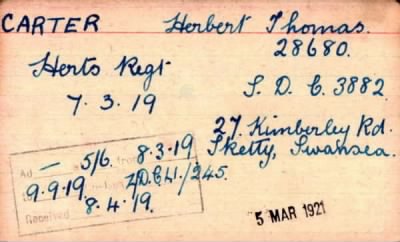 CARTER Herbert Thomas.
28680.
Herts Regt
7.3.19
S. D. C. 3882
27. Kimberley Rd.
Sketty, Swansea.
— 5/6. from 8.3.19
9.9.19
8.4.19.
Received
5 MAR 1921